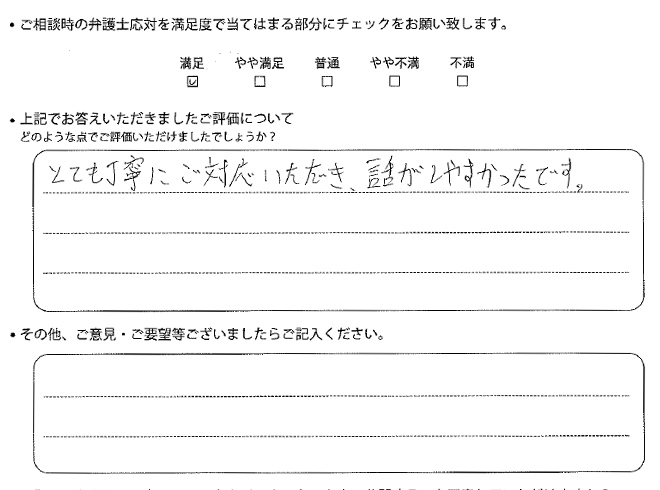 ・ご相談時の弁護士応対を満足度で当てはまる部分にチェックをお願い致します。
満足 やや満足 普通 やや不満 不満
☑ □ □ □ □
・上記でお答えいただきましたご評価について
どのような点でご評価いただけましたでしょうか？
とても丁寧にご対応いただき、話がしやすかったです。
・その他、ご意見・ご要望等ございましたらご記入ください。